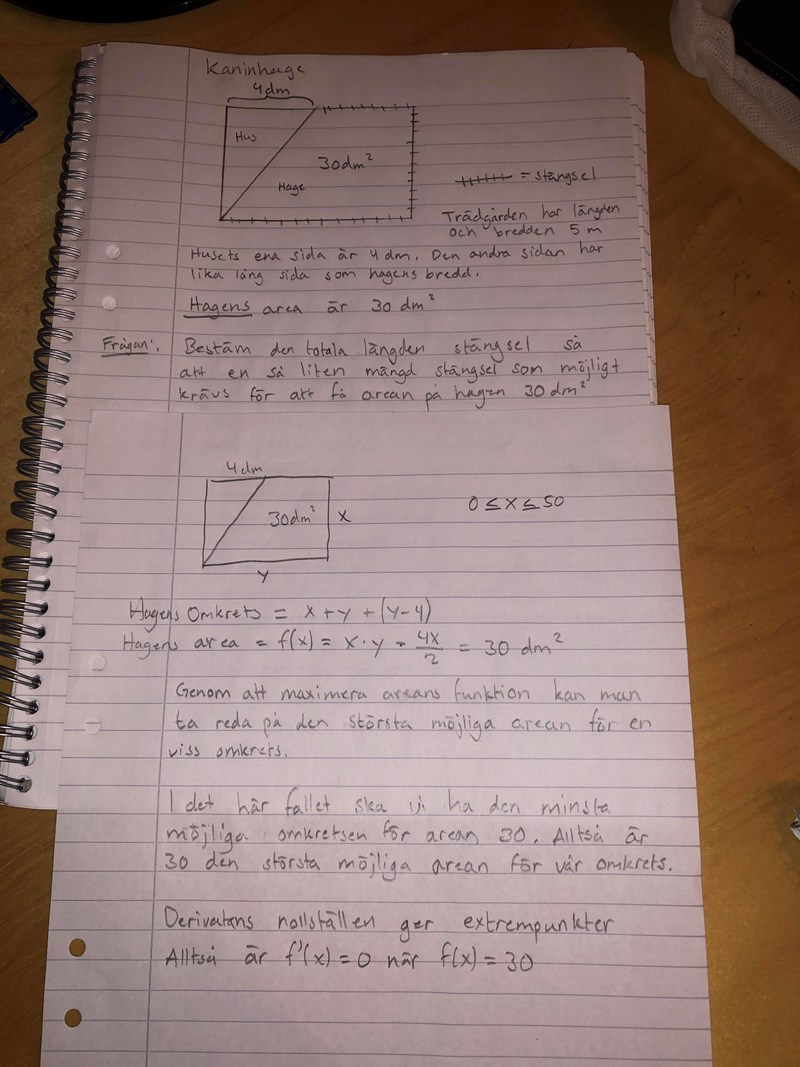 Kaninhage
4dm
Hus
30dm²
Hage
= stängsel
Trädgården har längden
och bredden 5 m
Husets ena sida är 4 dm. Den andra sidan har
lika lång sida som hagens bredd.
Hagens area är 30 dm²
Frågan: Bestäm den totala längden stängsel så
att en så liten mängd stängsel som möjligt
krävs för att få arean på hagen 30 dm²
4dm
30dm² x
0 ≤ x ≤ 50
y
Hagens Omkrets = x + y + (y-4)
Hagens area = f(x) = x · y - 4x/2 = 30 dm²
Genom att maximera areans funktion kan man
ta reda på den största möjliga arean för en
viss omkrets.
I det här fallet ska vi ha den minsta
möjliga omkretsen för arean 30. Alltså är
30 den största möjliga arean för vår omkrets.
Derivatans nollställen ger extrempunkter
Alltså är f'(x) = 0 när f(x) = 30